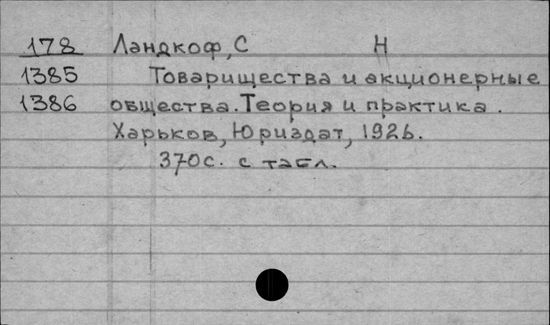 178 Ландкоф, С Н
1385 Товарищества и акционерные
1386 общества. Теория и практика.
Харьков, Юриздат, 1926.
370с. с табл.